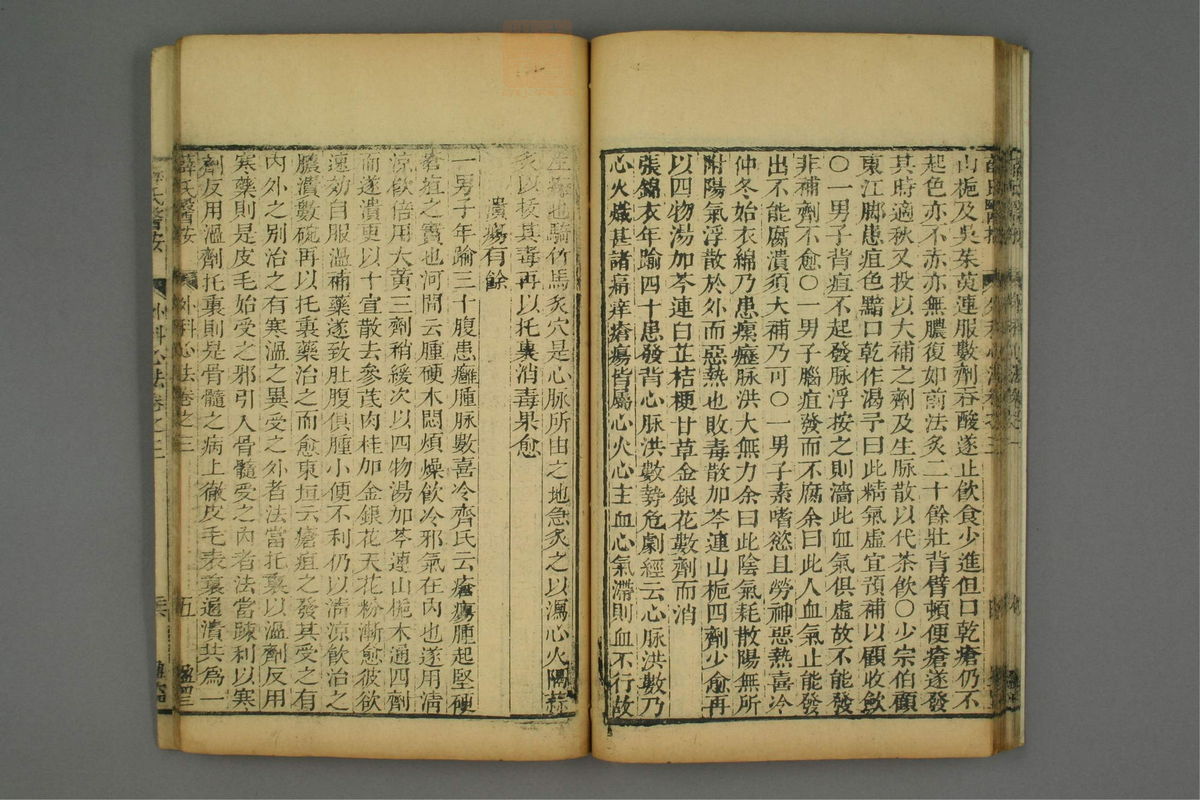 山梔及吳茱萸連服數劑吞酸遂止飲食少進但口乾瘡仍不
起色亦不赤亦無膿復如前法灸二十餘壯背臂頓便瘡遂發
其時適秋又投以大補之劑及生脉散以代茶飲〇少宗伯顧
東江脚患疽色黯口乾作渴予曰此精氣虛宜預補以顧收斂
〇一男子背疽不起發脉浮按之則濇此血氣俱虛故不能發
非補劑不愈〇一男子腦疽發而不腐余曰此人血氣止能發
出不能腐潰須大補乃可〇一男子素嗜慾且勞神惡熱喜冷
仲冬始衣綿乃患瘰癧脉洪大無力余曰此陰氣耗散陽無所
附陽氣浮散於外而惡熱也敗毒散加芩連山梔四劑少愈再
以四物湯加芩連白芷桔梗甘草金銀花數劑而消
張錦衣年踰四十患發背心脉洪數勢危劇經云心脉洪數乃
心火熾甚諸痛痒瘡瘍皆屬心火心主血心氣滯則血不行故
生癰也騎竹馬灸穴是心脉所由之地急灸之以瀉心火隔蒜
灸以拔其毒再以托裏消毒果愈
潰瘍有餘
一男子年踰三十腹患癰腫脉數喜冷齊氏云瘡瘍腫起堅硬
瘡疽之實也河間云腫硬木悶煩燥飲冷邪氣在內也遂用清
凉飲倍用大黄三劑稍緩次以四物湯加芩連山梔木通四劑
而遂潰更以十宣散去參芪肉桂加金銀花天花粉漸愈彼欲
速効自服溫補藥遂致肚腹俱腫小便不利仍以清凉飲治之
膿潰數碗再以托裏藥治之而愈東垣云瘡疽之發其受之有
內外之別治之有寒溫之異受之外者法當托裏以溫劑反用
寒藥則是皮毛始受之邪引入骨髓受之內者法當踈利以寒
劑反用溫劑托裏則是骨髓之病上徹皮毛表裏通潰共爲一
薛氏醫按 外科心法卷之三 五